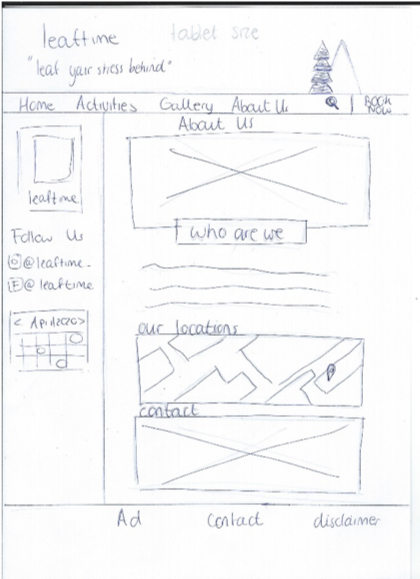 leaftime
tablet size
"leaf your stress behind"
Home Activities Gallery About Us
BOOK
NOW
About Us
leaftime
who are we
Follow Us
@leaftime.
@leaftime
< April 2020 >
our locations
contact
Ad Contact disclaimer